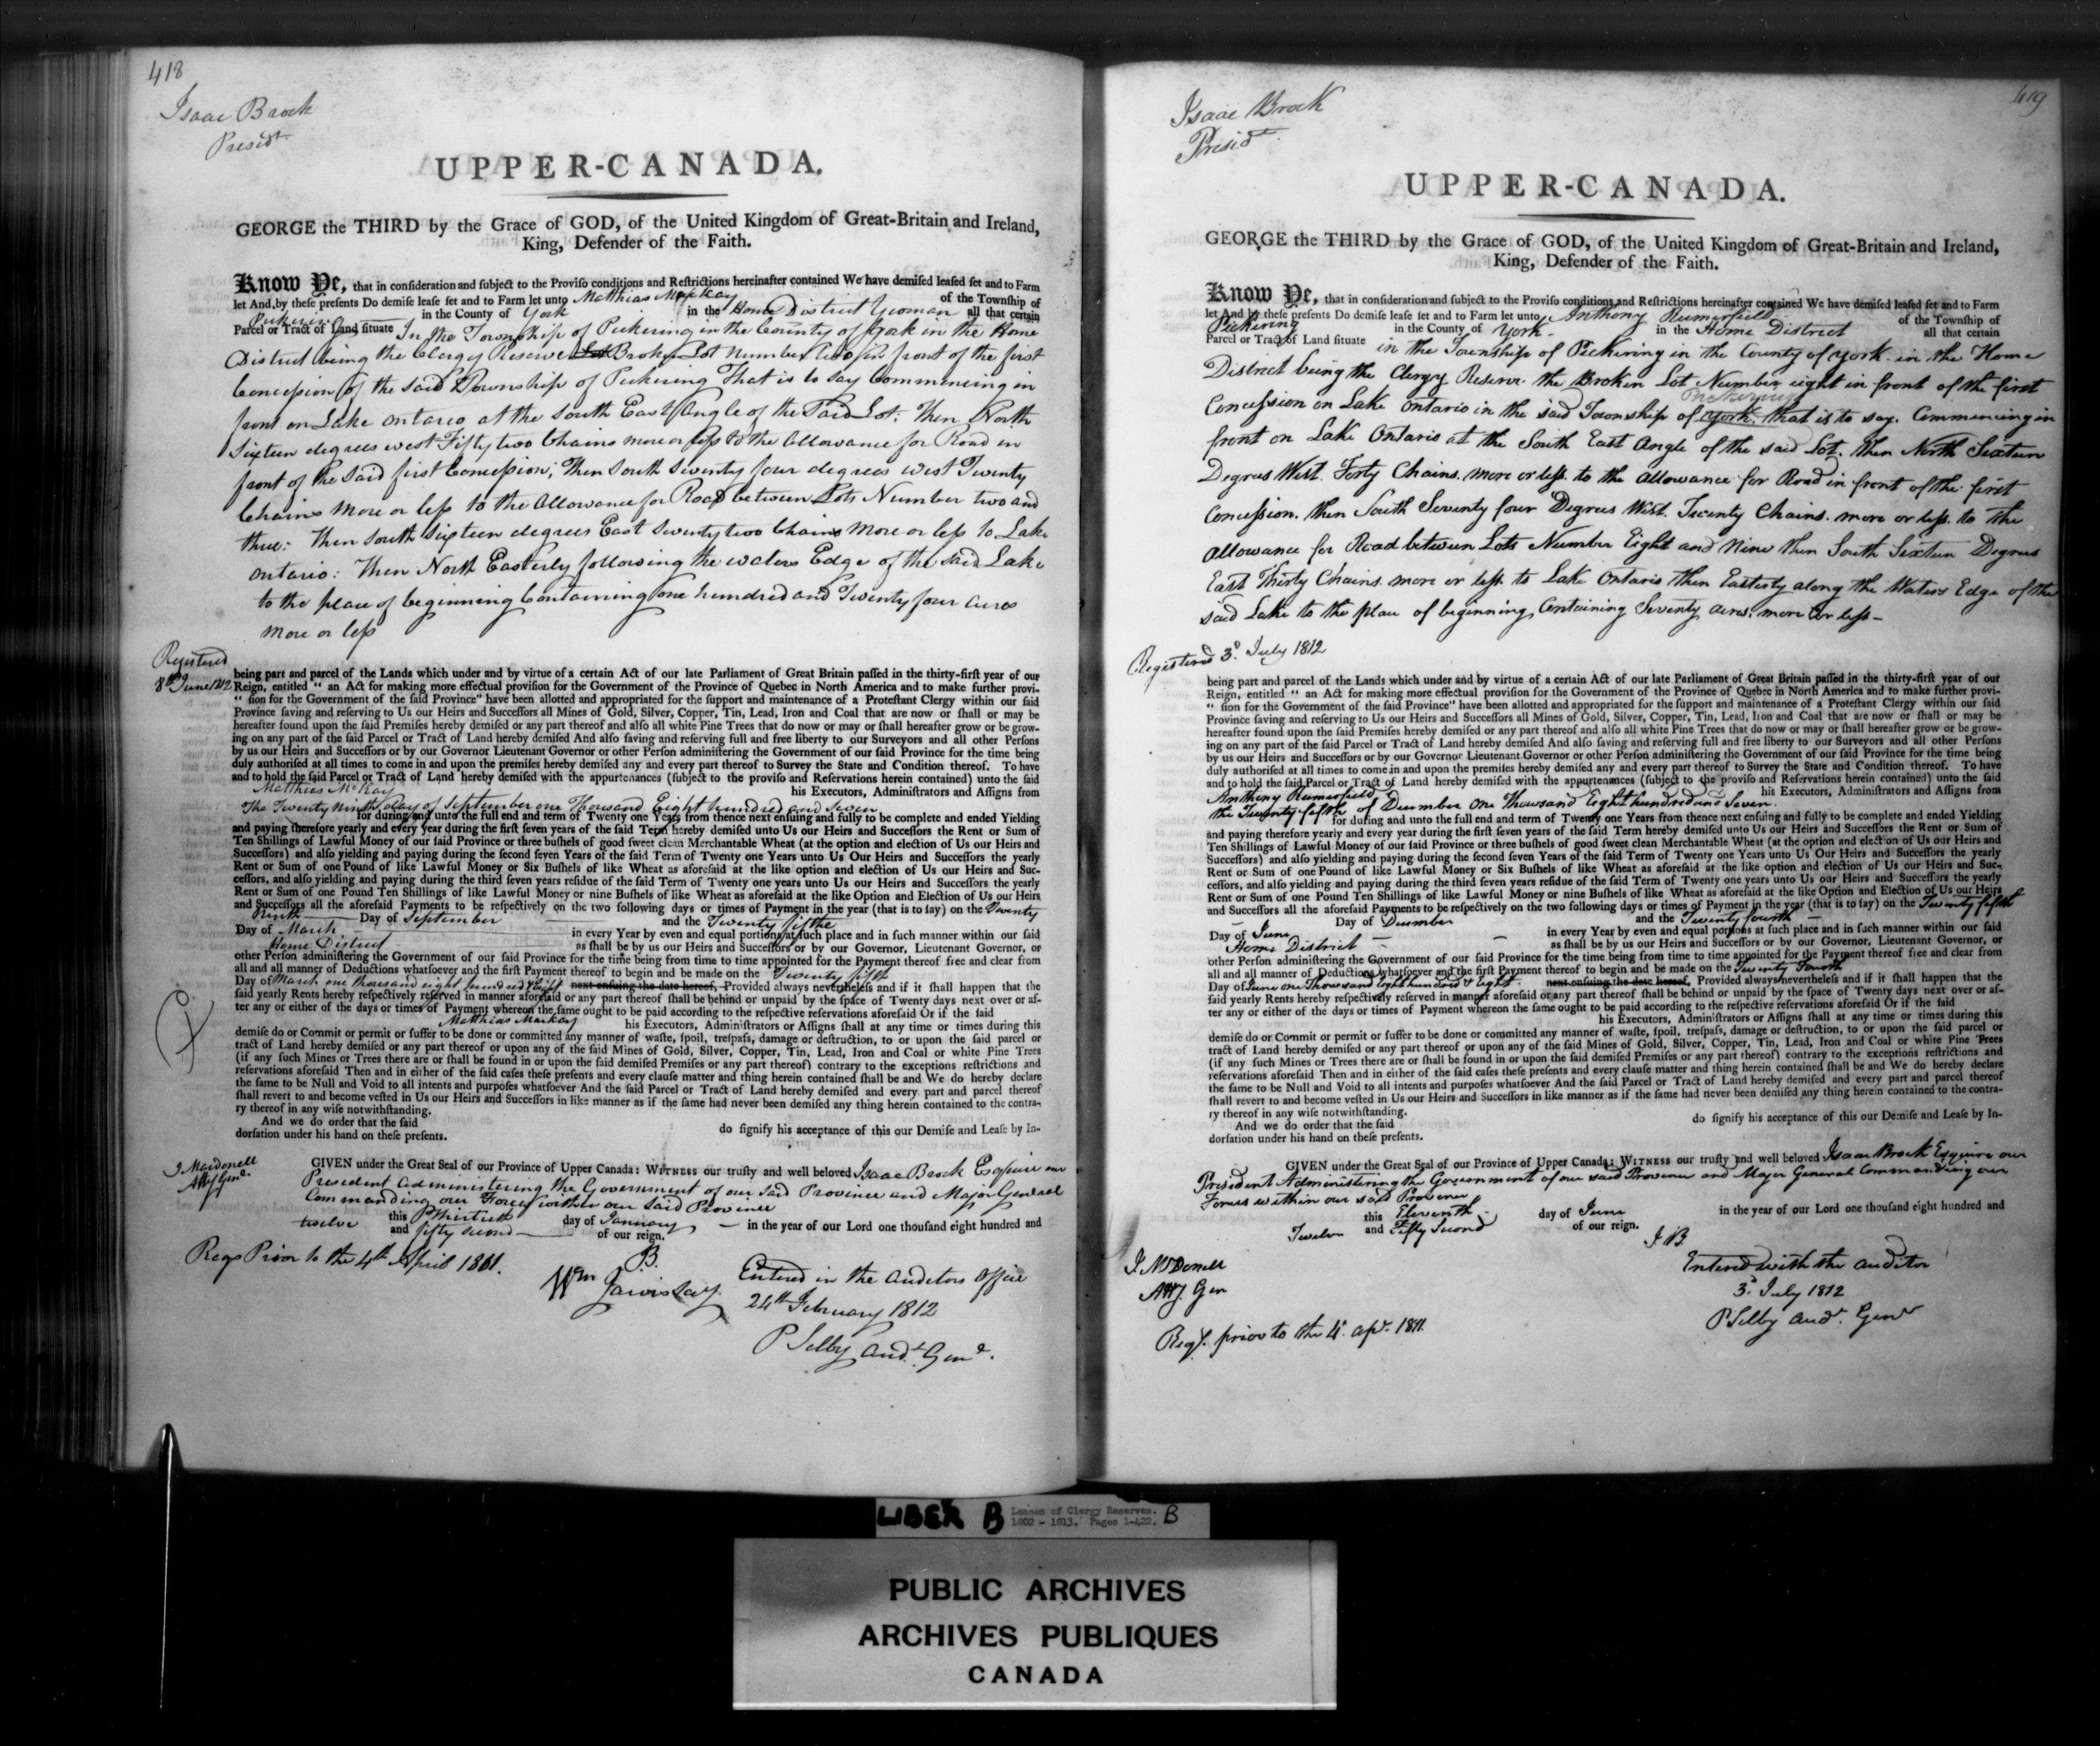 418
Isaac Brock
Presidt.
UPPER-CANADA.
GEORGE the THIRD by the Grace of GOD, of the United Kingdom of Great-Britain and Ireland,
King, Defender of the Faith.
Know Ye, that in consideration and subject to the Proviso conditions and Restrictions hereinafter contained We have demised leased set and to Farm
let And by these presents Do demise lease set and to Farm let unto Matthias MacKay of the Township of
Pickering in the County of York in the Home District Yeoman all that certain
Parcel or Tract of Land situate In the Township of Pickering in the County of York in the Home
District being the Clergy Reserve Lot Broken Lot number two in front of the first
Concession of the said Township of Pickering That is to say Commencing in
front on Lake Ontario at the South East Angle of the said Lot: Then North
Sixteen degrees west Fifty two Chains more or less to the allowance for Road in
front of the said first Concession; Then South Seventy four degrees west Twenty
Chains more or less to the Allowance for Road between Lots Number two and
three: Then South Sixteen degrees East Seventy two Chains more or less to Lake
Ontario: Then North Easterly following the waters Edge of the said Lake
to the place of beginning Containing one hundred and Twenty four acres
more or less
Registered
8th June 1812
being part and parcel of the Lands which under and by virtue of a certain Act of our late Parliament of Great Britain passed in the thirty-first year of our
Reign, entitled " an Act for making more effectual provision for the Government of the Province of Quebec in North America and to make further provi-
" sion for the Government of the said Province" have been allotted and appropriated for the support and maintenance of a Protestant Clergy within our said
Province saving and reserving to Us our Heirs and Successors all Mines of Gold, Silver, Copper, Tin, Lead, Iron and Coal that are now or shall or may be
hereafter found upon the said Premises hereby demised or any part thereof and also all white Pine Trees that do now or may or shall hereafter grow or be grow-
ing on any part of the said Parcel or Tract of Land hereby demised And also saving and reserving full and free liberty to our Surveyors and all other Persons
by us our Heirs and Successors or by our Governor Lieutenant Governor or other Person administering the Government of our said Province for the time being
duly authorised at all times to come in and upon the premises hereby demised any and every part thereof to Survey the State and Condition thereof. To have
and to hold the said Parcel or Tract of Land hereby demised with the appurtenances (subject to the proviso and Reservations herein contained) unto the said
Matthias McKay his Executors, Administrators and Assigns from
The Twenty Ninth day of September one Thousand Eight hundred and Seven
for during and unto the full end and term of Twenty one Years from thence next ensuing and fully to be complete and ended Yielding
and paying therefore yearly and every year during the first seven years of the said Term hereby demised unto Us our Heirs and Successors the Rent or Sum of
Ten Shillings of Lawful Money of our said Province or three bushels of good sweet clean Merchantable Wheat (at the option and election of Us our Heirs and
Successors) and also yielding and paying during the second seven Years of the said Term of Twenty one Years unto Us Our Heirs and Successors the yearly
Rent or Sum of one Pound of like Lawful Money or Six Bushels of like Wheat as aforesaid at the like option and election of Us our Heirs and Suc-
cessors, and also yielding and paying during the third seven years residue of the said Term of Twenty one years unto Us our Heirs and Successors the yearly
Rent or Sum of one Pound Ten Shillings of like Lawful Money or nine Bushels of like Wheat as aforesaid at the like Option and Election of Us our Heirs
and Successors all the aforesaid Payments to be respectively on the two following days or times of Payment in the year (that is to say) on the Twenty
Ninth Day of September and the Twenty fifth
Day of March in every Year by even and equal portions at such place and in such manner within our said
Home District as shall be by us our Heirs and Successors or by our Governor, Lieutenant Governor, or
other Person administering the Government of our said Province for the time being from time to time appointed for the Payment thereof free and clear from
all and all manner of Deductions whatsoever and the first Payment thereof to begin and be made on the Twenty fifth
Day of March one thousand eight hundred & Eight next ensuing the date hereof, Provided always nevertheless and if it shall happen that the
said yearly Rents hereby respectively reserved in manner aforesaid or any part thereof shall be behind or unpaid by the space of Twenty days next over or af-
ter any or either of the days or times of Payment whereon the same ought to be paid according to the respective reservations aforesaid Or if the said
Matthias Mackay his Executors, Administrators or Assigns shall at any time or times during this
demise do or Commit or permit or suffer to be done or committed any manner of waste, spoil, trespass, damage or destruction, to or upon the said parcel or
tract of Land hereby demised or any part thereof or upon any of the said Mines of Gold, Silver, Copper, Tin, Lead, Iron and Coal or white Pine Trees
(if any such Mines or Trees there are or shall be found in or upon the said demised Premises or any part thereof) contrary to the exceptions restrictions and
reservations aforesaid Then and in either of the said cases these presents and every clause matter and thing herein contained shall be and We do hereby declare
the same to be Null and Void to all intents and purposes whatsoever And the said Parcel or Tract of Land hereby demised and every part and parcel thereof
shall revert to and become vested in Us our Heirs and Successors in like manner as if the same had never been demised any thing herein contained to the contra-
ry thereof in any wise notwithstanding.
And we do order that the said do signify his acceptance of this our Demise and Lease by In-
dorsation under his hand on these presents.
J Macdonell
Atty Genl.
GIVEN under the Great Seal of our Province of Upper Canada: WITNESS our trusty and well beloved Isaac Brock Esquire our
President administering the Government of our said Province and Major General
Commanding our Forces within our said Province
this Thirtieth day of January in the year of our Lord one thousand eight hundred and
twelve and fifty second of our reign.
Regd Prior to the 4th April 1811.
B.
Wm Jarvis Secy.
Entered in the Auditors Office
24th February 1812
P Selby Audt. Genl.
419
Isaac Brock
Presidt
UPPER-CANADA.
GEORGE the THIRD by the Grace of GOD, of the United Kingdom of Great-Britain and Ireland,
King, Defender of the Faith.
Know Ye, that in consideration and subject to the Proviso conditions and Restrictions hereinafter contained We have demised leased set and to Farm
let And by these presents Do demise lease set and to Farm let unto Anthony Rumerfield of the Township of
Pickering in the County of York in the Home District all that certain
Parcel or Tract of Land situate in the Township of Pickering in the County of York in the Home
District being the Clergy Reserve the Broken Lot Number eight in front of the first
Pickering
Concession on Lake Ontario in the said Township of York that is to say. Commencing in
front on Lake Ontario at the South East angle of the said Lot. then North Sixteen
Degrees West. Forty Chains. more or less. to the allowance for Road in front of the first
Concession. then South Seventy four Degrees West. Twenty Chains. more or less. to the
allowance for Road between Lots Number Eight and Nine then South Sixteen Degrees
East Thirty Chains. more or less. to Lake Ontario then Easterly along the Waters Edge of the
said Lake to the place of beginning, Containing Seventy acres, more or less
Registered 3d. July 1812
being part and parcel of the Lands which under and by virtue of a certain Act of our late Parliament of Great Britain passed in the thirty-first year of our
Reign, entitled " an Act for making more effectual provision for the Government of the Province of Quebec in North America and to make further provi-
" sion for the Government of the said Province" have been allotted and appropriated for the support and maintenance of a Protestant Clergy within our said
Province saving and reserving to Us our Heirs and Successors all Mines of Gold, Silver, Copper, Tin, Lead, Iron and Coal that are now or shall or may be
hereafter found upon the said Premises hereby demised or any part thereof and also all white Pine Trees that do now or may or shall hereafter grow or be grow-
ing on any part of the said Parcel or Tract of Land hereby demised And also saving and reserving full and free liberty to our Surveyors and all other Persons
by us our Heirs and Successors or by our Governor Lieutenant Governor or other Person administering the Government of our said Province for the time being
duly authorised at all times to come in and upon the premises hereby demised any and every part thereof to Survey the State and Condition thereof. To have
and to hold the said Parcel or Tract of Land hereby demised with the appurtenances (subject to the proviso and Reservations herein contained) unto the said
Anthony Rumerfield his Executors, Administrators and Assigns from
the Twenty fifth of December one thousand Eight hundred and Seven.
for during and unto the full end and term of Twenty one Years from thence next ensuing and fully to be complete and ended Yielding
and paying therefore yearly and every year during the first seven years of the said Term hereby demised unto Us our Heirs and Successors the Rent or Sum of
Ten Shillings of Lawful Money of our said Province or three bushels of good sweet clean Merchantable Wheat (at the option and election of Us our Heirs and
Successors) and also yielding and paying during the second seven Years of the said Term of Twenty one Years unto Us Our Heirs and Successors the yearly
Rent or Sum of one Pound of like Lawful Money or Six Bushels of like Wheat as aforesaid at the like option and election of Us our Heirs and Suc-
cessors, and also yielding and paying during the third seven years residue of the said Term of Twenty one years unto Us our Heirs and Successors the yearly
Rent or Sum of one Pound Ten Shillings of like Lawful Money or nine Bushels of like Wheat as aforesaid at the like Option and Election of Us our Heirs
and Successors all the aforesaid Payments to be respectively on the two following days or times of Payment in the year (that is to say) on the Twenty fifth
Day of December and the Twenty fourth
Day of June in every Year by even and equal portions at such place and in such manner within our said
Home District as shall be by us our Heirs and Successors or by our Governor, Lieutenant Governor, or
other Person administering the Government of our said Province for the time being from time to time appointed for the Payment thereof free and clear from
all and all manner of Deductions whatsoever and the first Payment thereof to begin and be made on the Twenty Fourth
Day of June one Thousand Eight hundred & Eight. next ensuing the date hereof, Provided always nevertheless and if it shall happen that the
said yearly Rents hereby respectively reserved in manner aforesaid or any part thereof shall be behind or unpaid by the space of Twenty days next over or af-
ter any or either of the days or times of Payment whereon the same ought to be paid according to the respective reservations aforesaid Or if the said
his Executors, Administrators or Assigns shall at any time or times during this
demise do or Commit or permit or suffer to be done or committed any manner of waste, spoil, trespass, damage or destruction, to or upon the said parcel or
tract of Land hereby demised or any part thereof or upon any of the said Mines of Gold, Silver, Copper, Tin, Lead, Iron and Coal or white Pine Trees
(if any such Mines or Trees there are or shall be found in or upon the said demised Premises or any part thereof) contrary to the exceptions restrictions and
reservations aforesaid Then and in either of the said cases these presents and every clause matter and thing herein contained shall be and We do hereby declare
the same to be Null and Void to all intents and purposes whatsoever And the said Parcel or Tract of Land hereby demised and every part and parcel thereof
shall revert to and become vested in Us our Heirs and Successors in like manner as if the same had never been demised any thing herein contained to the contra-
ry thereof in any wise notwithstanding.
And we do order that the said do signify his acceptance of this our Demise and Lease by In-
dorsation under his hand on these presents.
GIVEN under the Great Seal of our Province of Upper Canada: WITNESS our trusty and well beloved Isaac Brock Esquire our
President Administering the Government of our said Province and Major General Commanding our
Forces within our said Province
this Eleventh day of June in the year of our Lord one thousand eight hundred and
Twelve and Fifty Second of our reign.
I.B.
J. McDonell
Atty. Gen
Entered with the auditor
3d July 1812
P Selby Audr. Genl
Regd. prior to the 4th. apr. 1811.
LIBER B Leases of Clergy Reserves.
1802 - 1813. Pages 1-422. B
PUBLIC ARCHIVES
ARCHIVES PUBLIQUES
CANADA